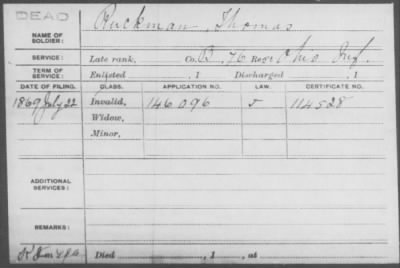 DEAD
Ruckman, Thomas
NAME OF
SOLDIER:
SERVICE:
Late rank, Co. B, 76 Reg't Ohio Inf.
TERM OF
SERVICE:
Enlisted , 1 Discharged , 1
DATE OF FILING. CLASS. APPLICATION NO. LAW. CERTIFICATE NO.
1869 July 22 Invalid, 146096 114528
Widow,
Minor,
ADDITIONAL
SERVICES:
REMARKS:
Died , 1 , at